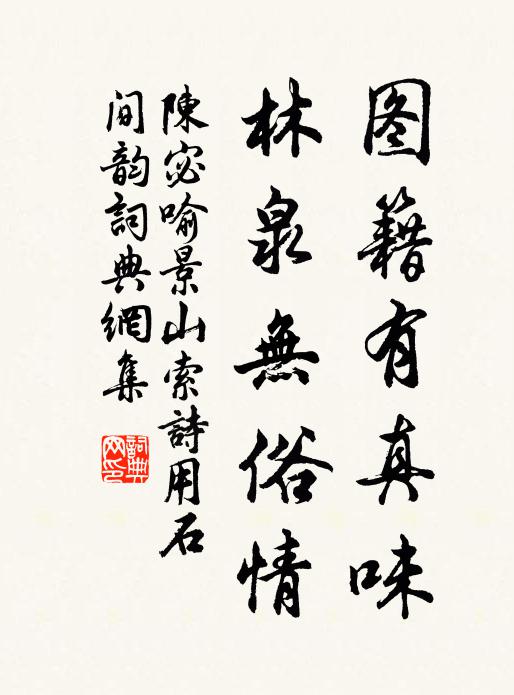 图籍有真味
林泉無俗情
陳宓喻景山索詩用石
间韵詞典網集
詞典
网印